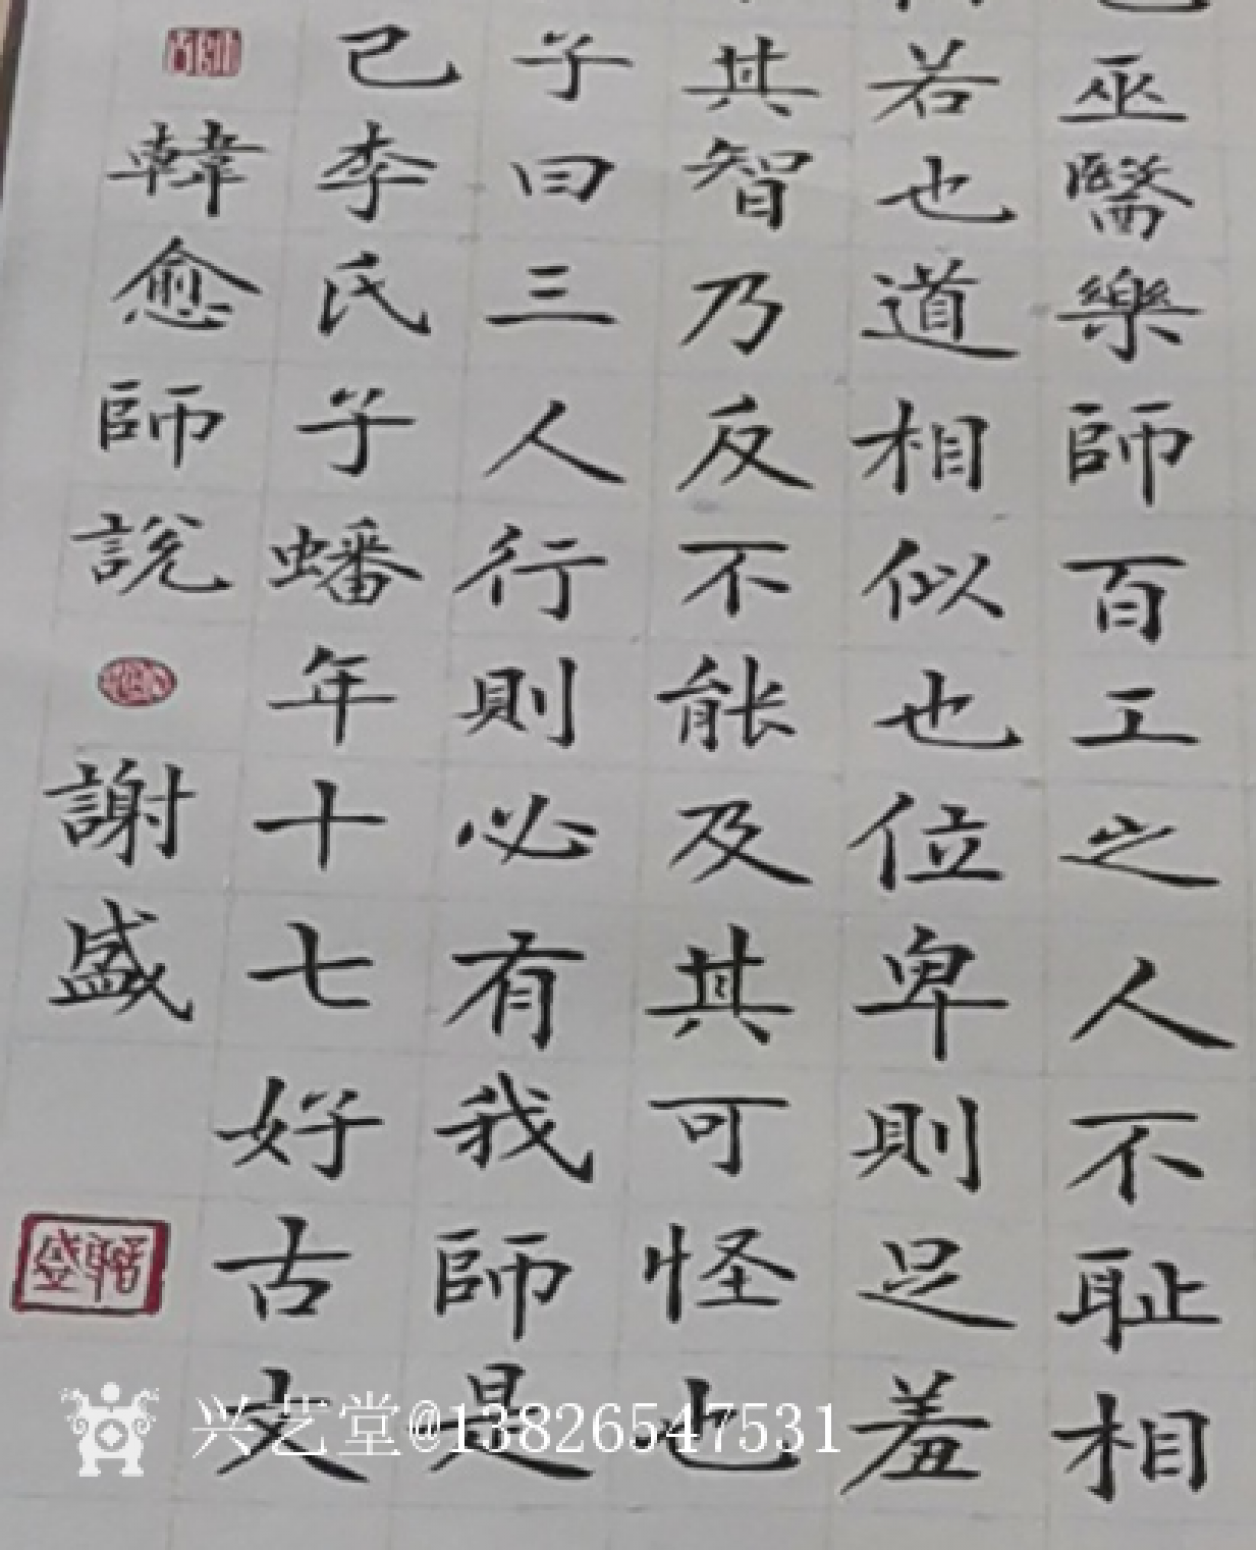 巫醫樂師百工之人不耻相
若也道相似也位卑則足羞
其智乃反不能及其可怪也
子曰三人行則必有我師是
已李氏子蟠年十七好古文
韓愈師說
謝盛
兴艺堂@13826547531